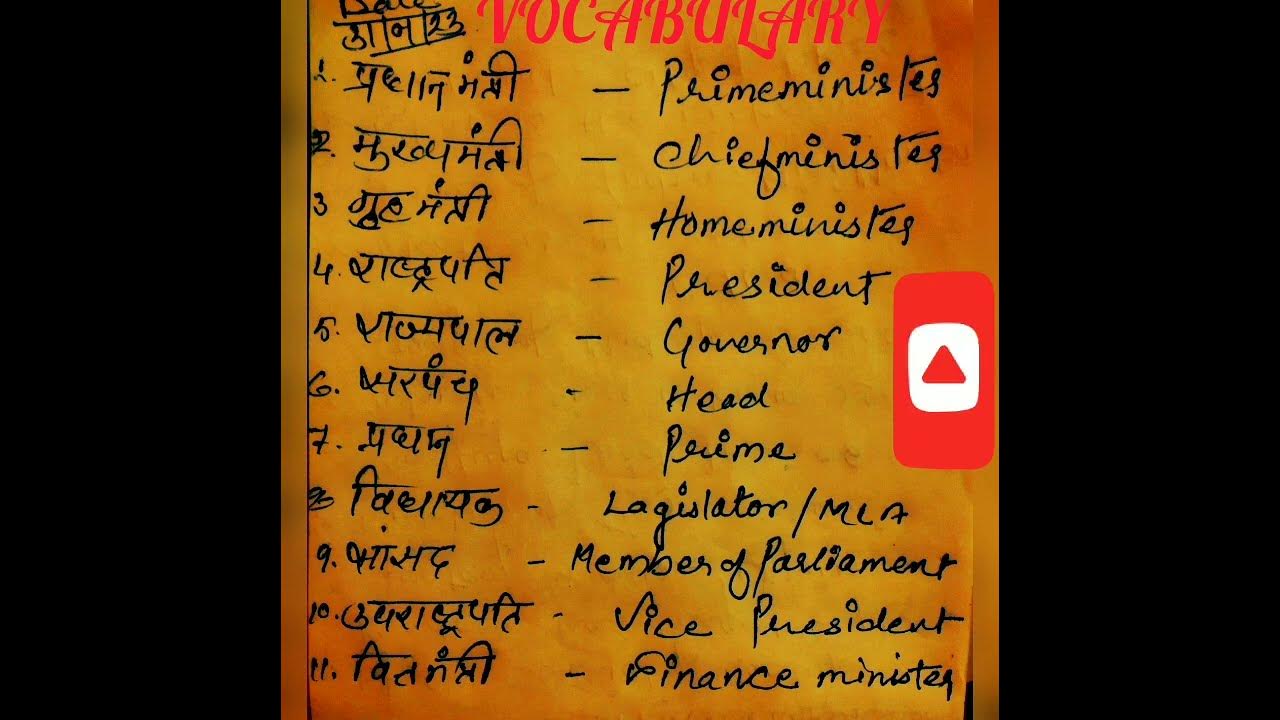 Date
VOCABULARY
1. प्रधानमंत्री - Primeminister
2. मुख्यमंत्री - Chiefminister
3 गृहमंत्री - Homeminister
4. राष्ट्रपति - President
5. राज्यपाल - Governor
6. सरपंच - Head
7. प्रधान - Prime
8 विधायक - Lagislator/MLA
9. सांसद - Member of Parliament
10. उपराष्ट्रपति - Vice President
11. वित्तमंत्री - Finance minister